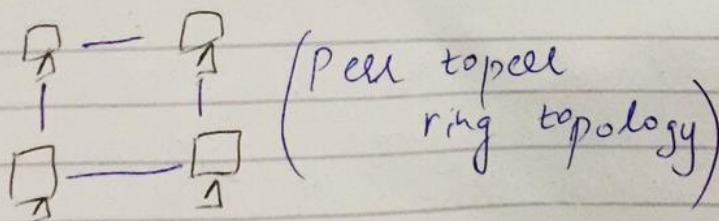 (Peer to peer
ring topology)